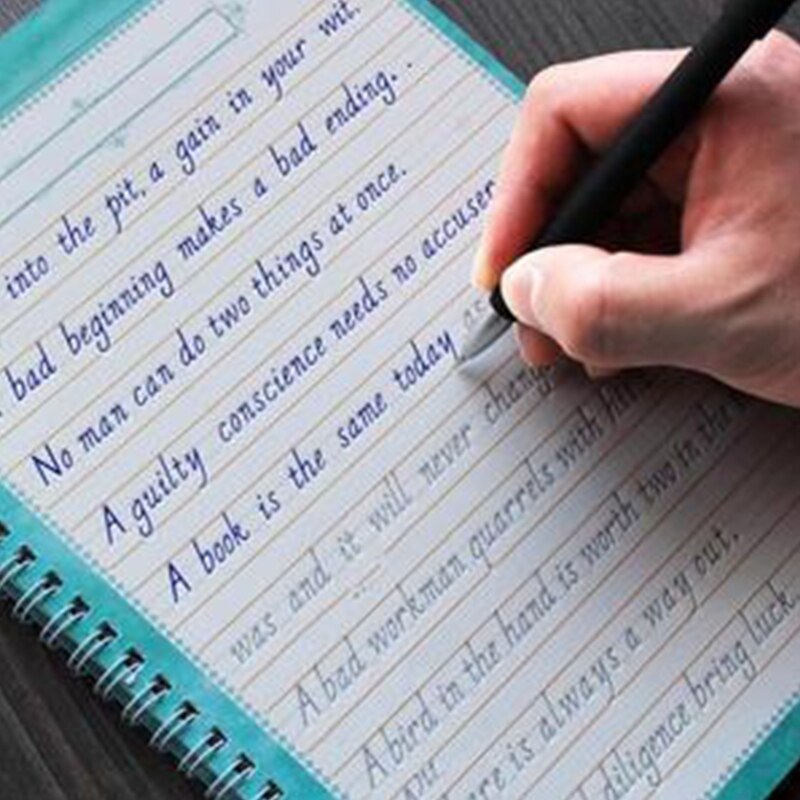 into the pit, a gain in your wit.
bad beginning makes a bad ending. .
No man can do two things at once.
A guilty conscience needs no accuser
A book is the same today as
was and it will never
A bad workman quarrels with
A bird in the hand is worth two in the
is always a way out.
diligence bring luck.